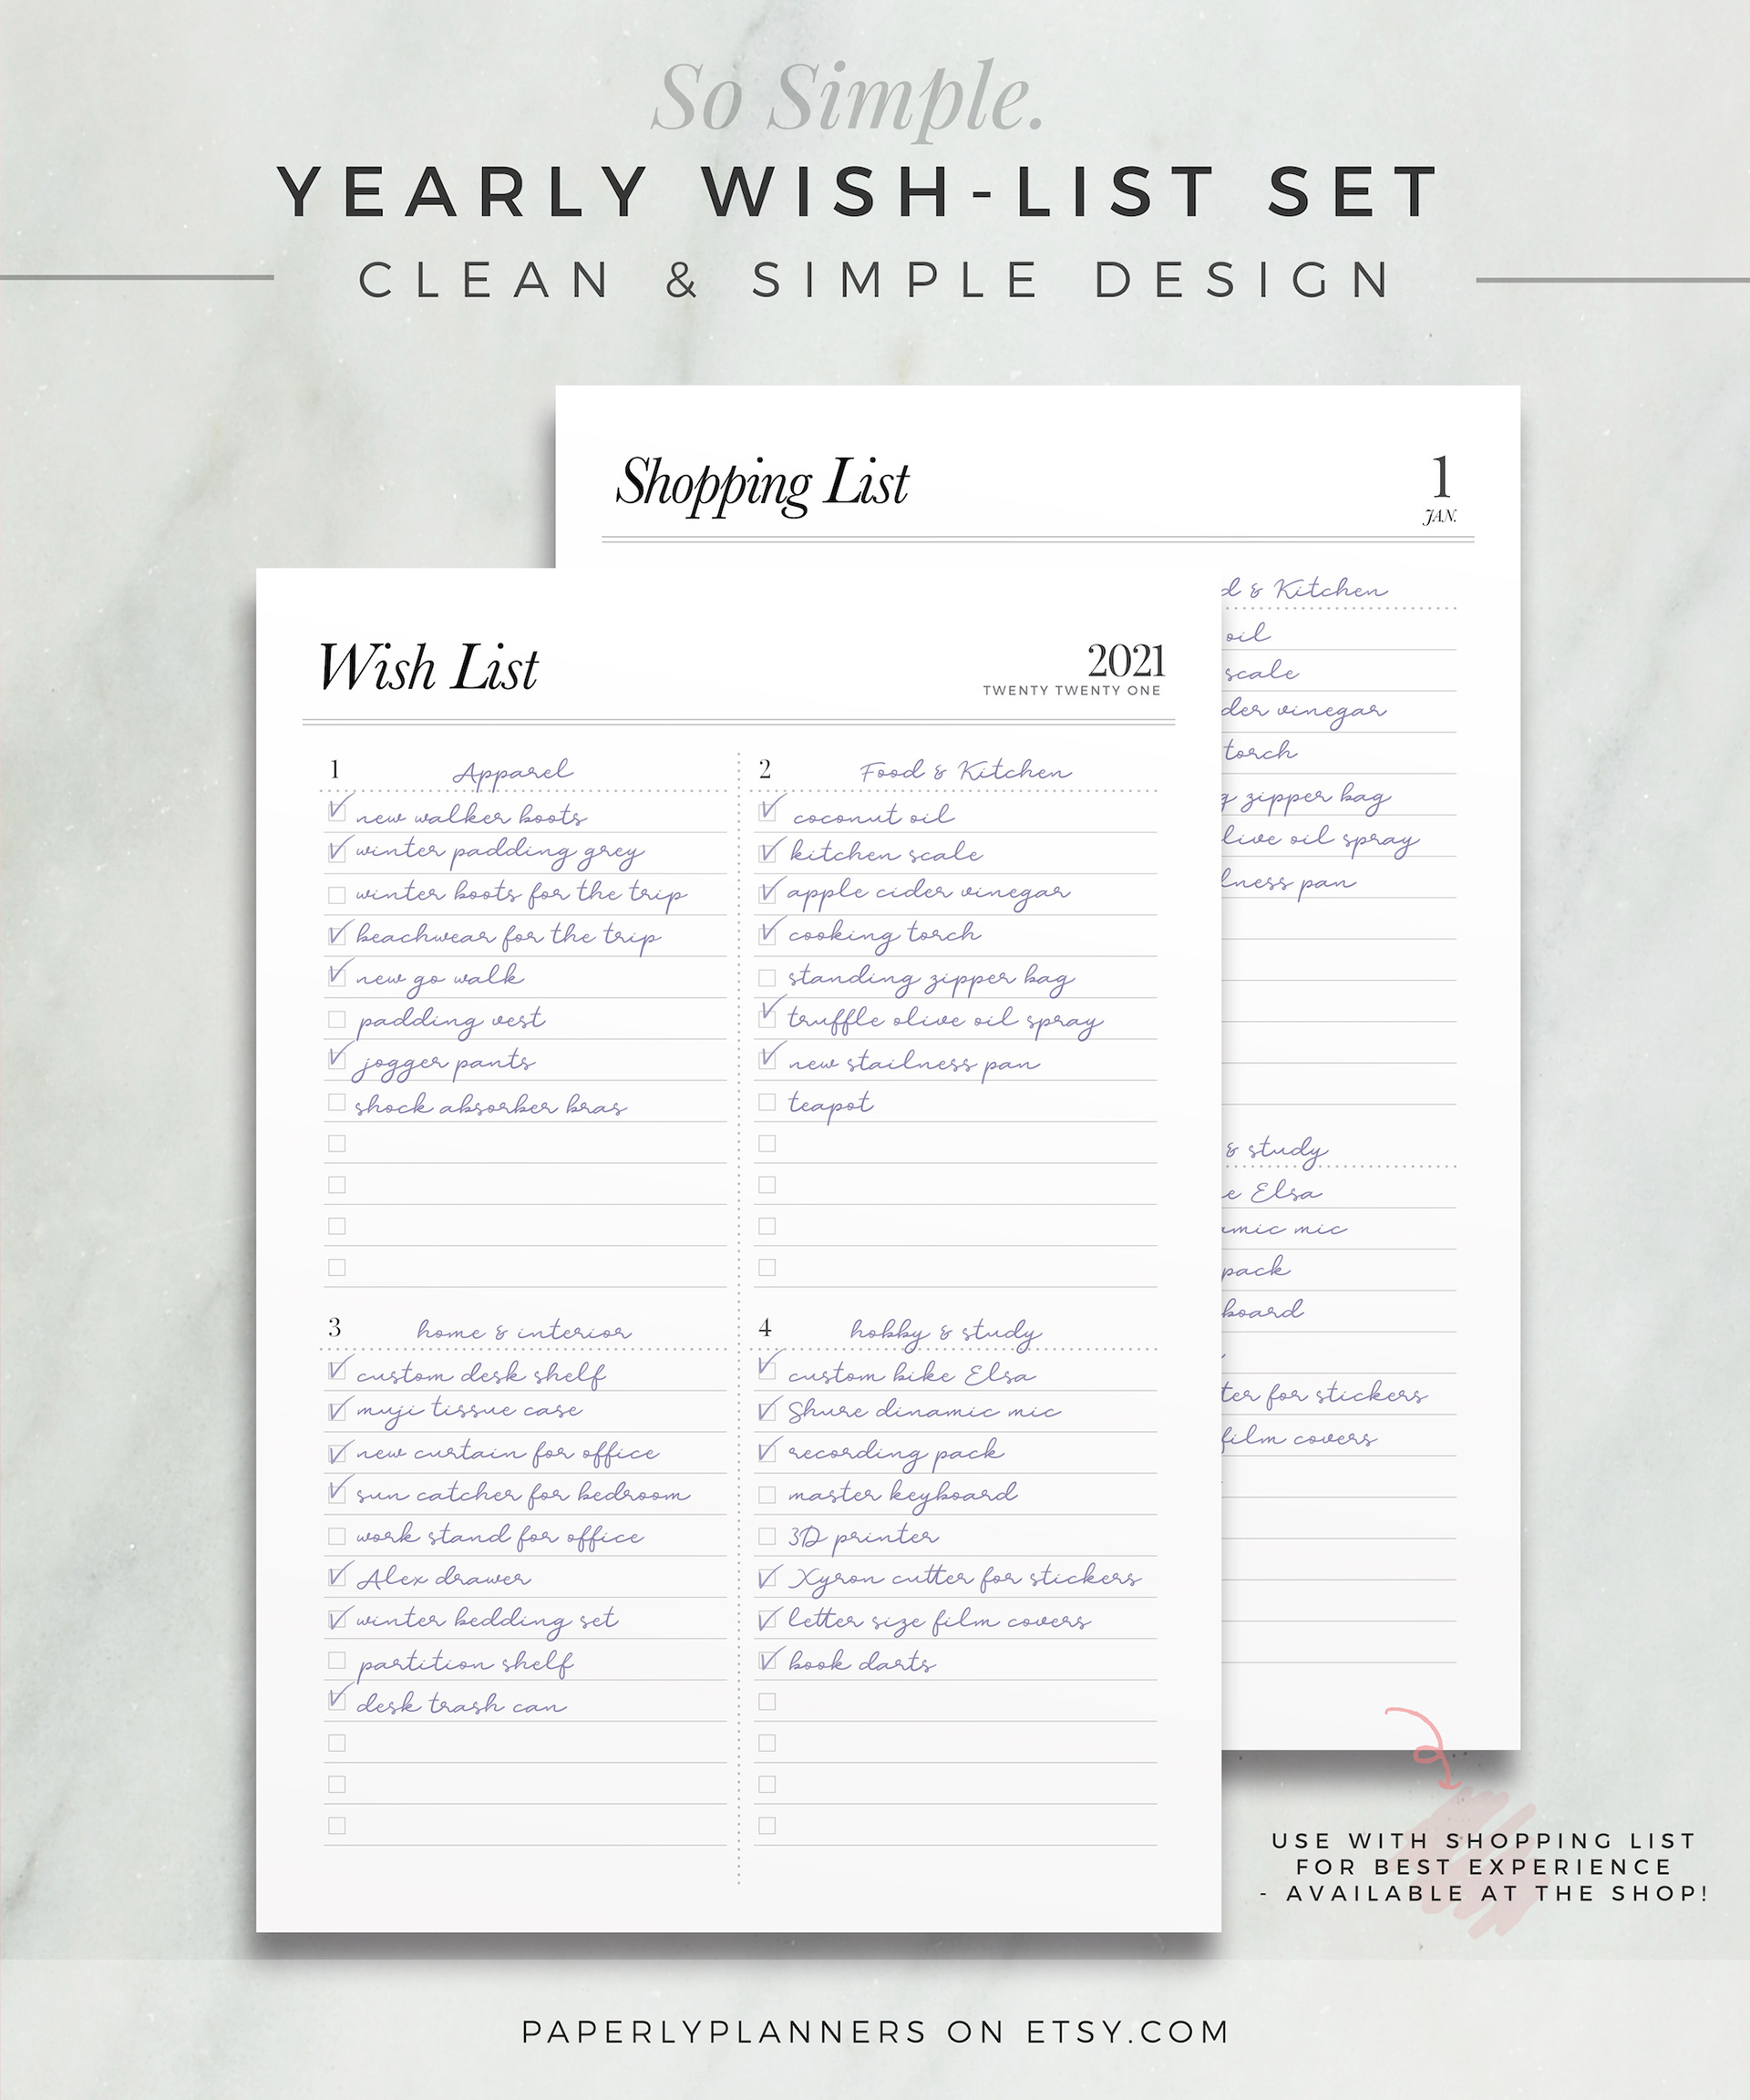 So Simple.
YEARLY WISH-LIST SET
CLEAN & SIMPLE DESIGN
Shopping List
1
JAN.
d & Kitchen
oil
scale
der vinegar
torch
g zipper bag
live oil spray
lness pan
& study
e Elsa
amic mic
pack
board
ter for stickers
film covers
Wish List
2021
TWENTY TWENTY ONE
1 Apparel
new walker boots
winter padding grey
winter boots for the trip
beachwear for the trip
new go walk
padding vest
jogger pants
shock absorber bras
2 Food & Kitchen
coconut oil
kitchen scale
apple cider vinegar
cooking torch
standing zipper bag
truffle olive oil spray
new stailness pan
teapot
3 home & interior
custom desk shelf
muji tissue case
new curtain for office
sun catcher for bedroom
work stand for office
Alex drawer
winter bedding set
partition shelf
desk trash can
4 hobby & study
custom bike Elsa
Shure dinamic mic
recording pack
master keyboard
3D printer
Xyron cutter for stickers
letter size film covers
book darts
USE WITH SHOPPING LIST
FOR BEST EXPERIENCE
- AVAILABLE AT THE SHOP!
PAPERLYPLANNERS ON ETSY.COM